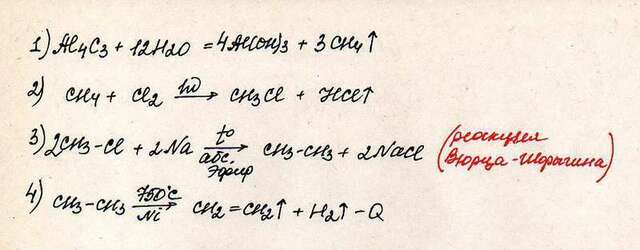 1) Al4C3 + 12H2O = 4Al(OH)3 + 3CH4↑
2) CH4 + Cl2 hν → CH3Cl + HCl↑
3) 2CH3-Cl + 2Na t° абс. эфир → CH3-CH3 + 2NaCl (реакция Вюрца-Шорыгина)
4) CH3-CH3 750°C Ni → CH2=CH2↑ + H2↑ - Q